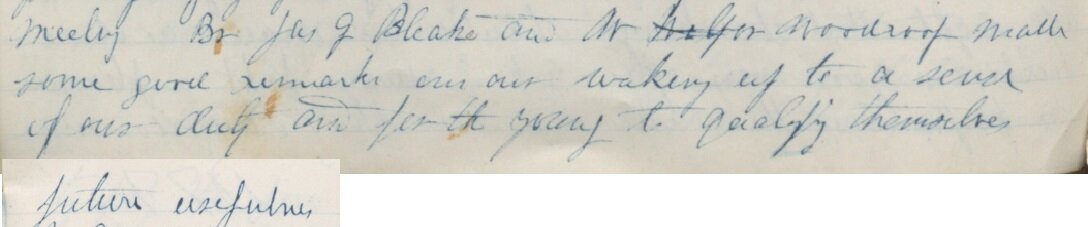 Meeting Br Jas G Bleake and W Woodroof made
some good remarks on our waking up to a sense
of our duty and for th young to qualify themselves
future usefulnes